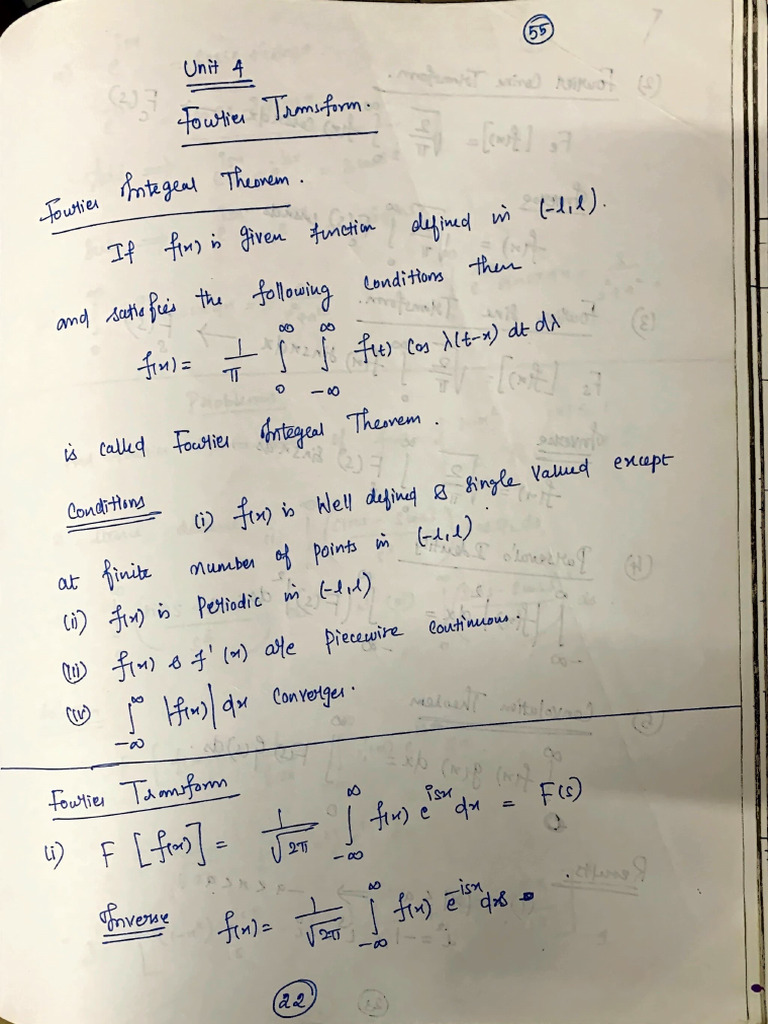 55
Unit 4
Fourier Transform.
Fourier Integral Theorem.
If f(x) is given function defined in (-l, l).
and satisfies the following conditions then
f(x) = 1/π ∫₀^∞ ∫₋∞^∞ f(t) cos λ(t-x) dt dλ
is called Fourier Integral Theorem.
Conditions (i) f(x) is Well defined & single valued except
at finite number of points in (-l, l)
(ii) f(x) is Periodic in (-l, l)
(iii) f(x) & f'(x) are piecewise continuous.
(iv) ∫₋∞^∞ |f(x)| dx converges.
Fourier Transform
(i) F[f(x)] = 1/√2π ∫₋∞^∞ f(x) e^{isx} dx = F(s)
Inverse f(x) = 1/√2π ∫₋∞^∞ f(x) e^{-isx} ds
22